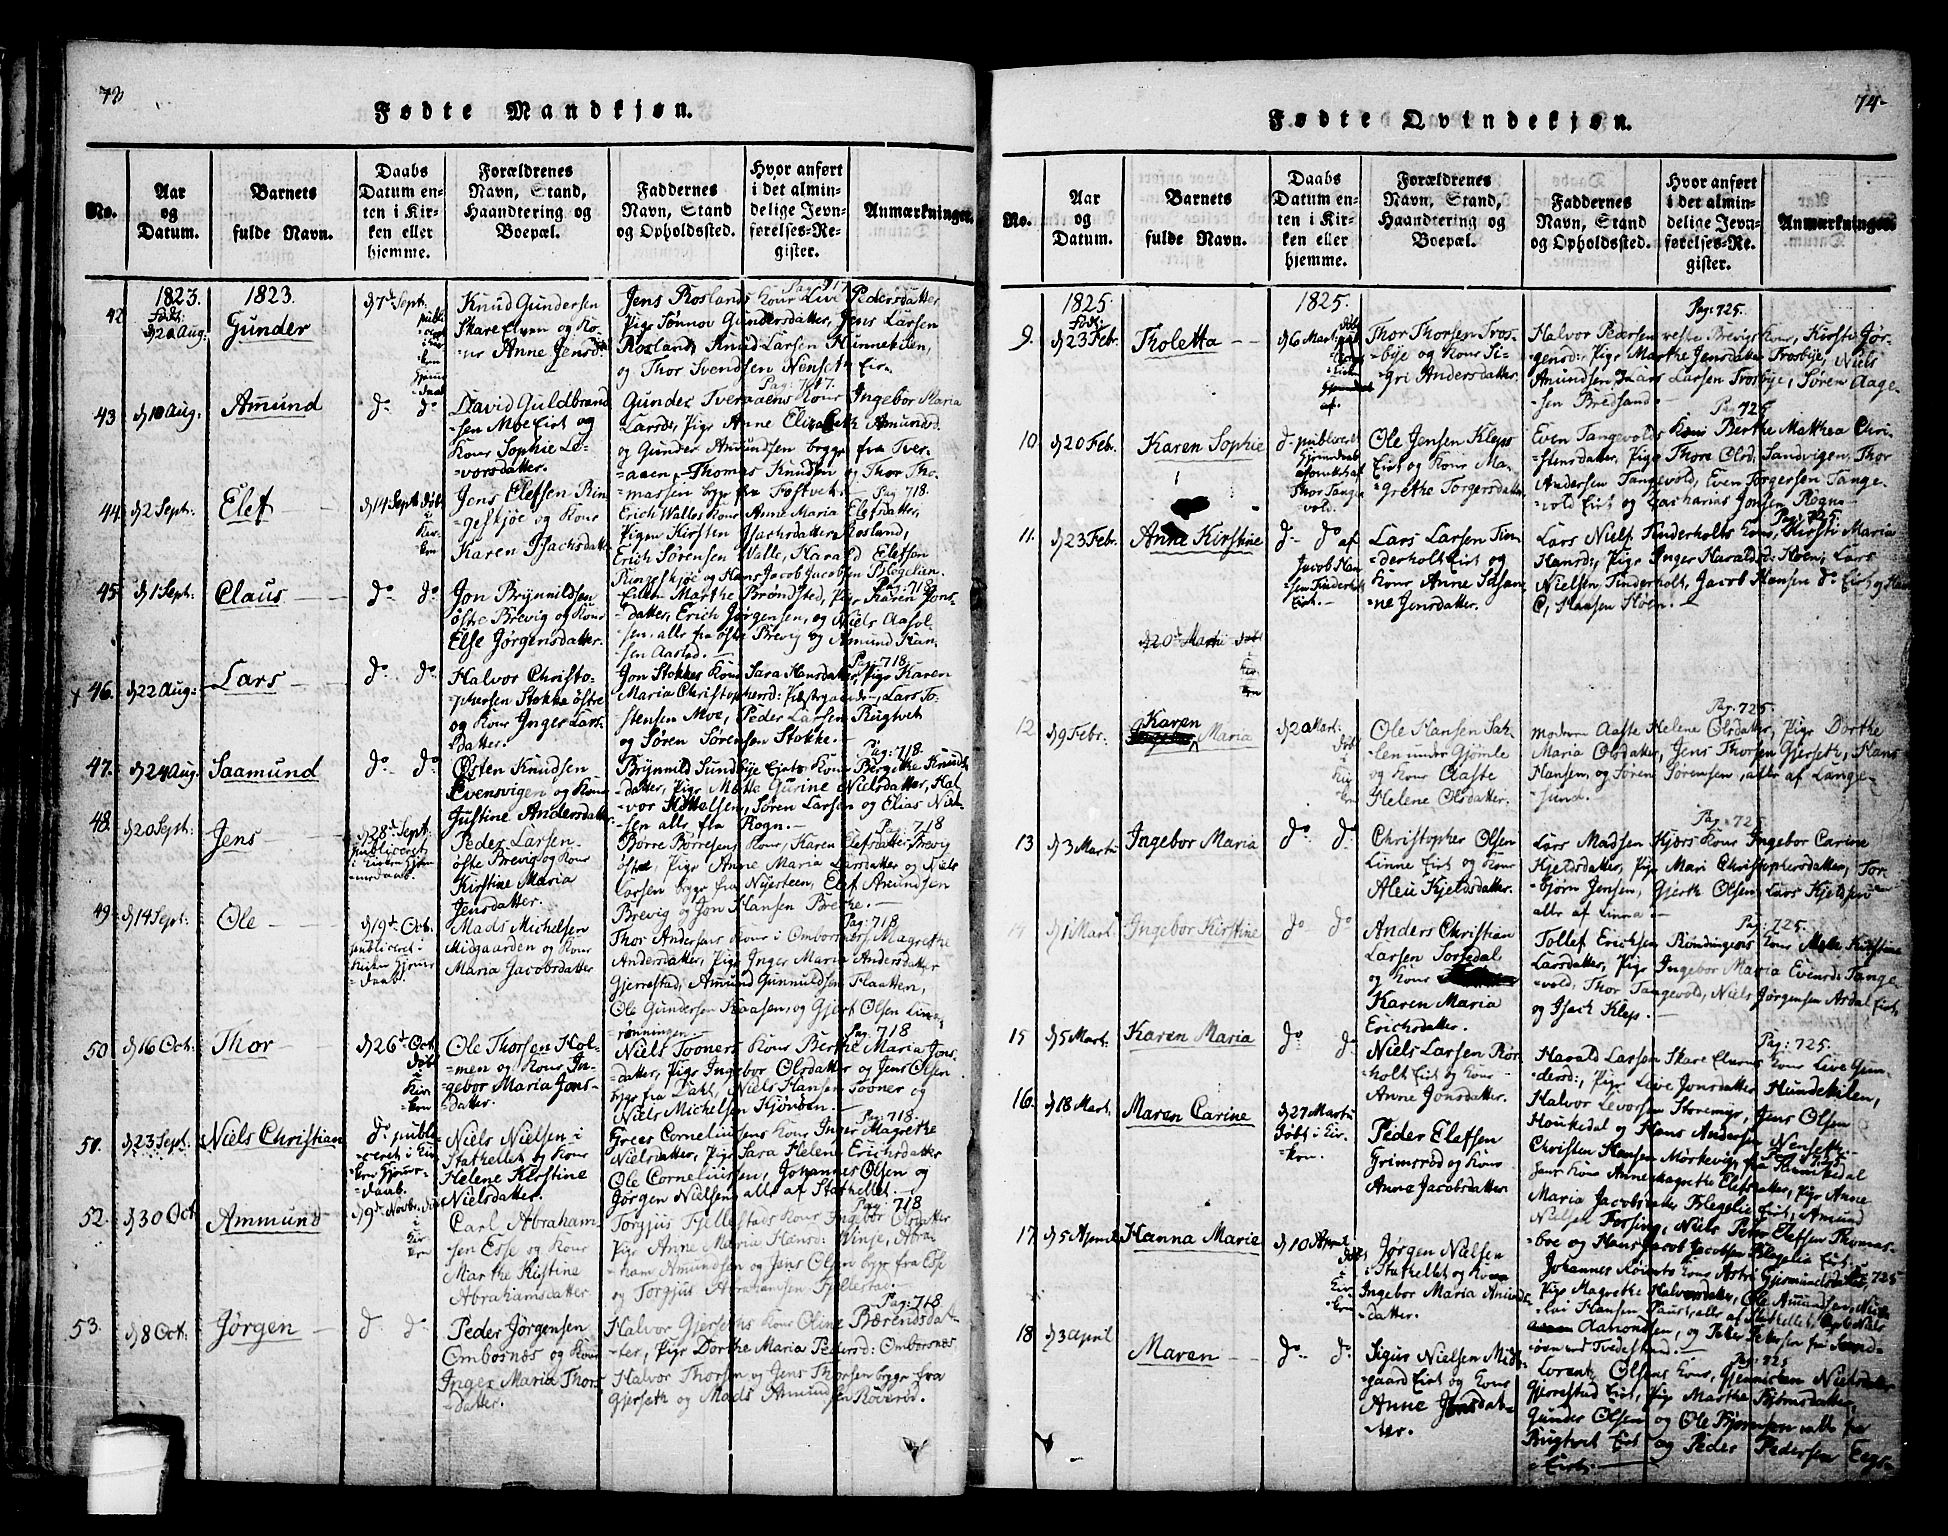 Fødte Mandkjøn.
No.
Aar og Datum.
Barnets fulde Navn.
Daabs Datum enten i Kirken eller hjemme.
Forældrenes Navn, Stand, Haandtering og Boepæl.
Faddernes Navn, Stand og Opholdssted.
Hvor anført i det almindelige Jevnførelses-Register.
Anmærkninger.
1823.
1823.
42
Født:
Gunder
d 7d Sept.
Knud Gundersen
Skareelven og Ko-
=ne Anne Jensd
Jens Roslands Kone Live Pedersdatter
Pige Tønnov Gundersdatter, Jens Larsen
Rosland, Knud Larsen Hinnekleiv,
og Thor Svendsen Nenset
Pag: 717.
43
d 10 Aug:
Amund
do do
David Guldbrand
=sen Moe Eiet og
Kone Sophie Le-
=vorsdatter.
Gunder Tveraaens Kone Ingebor Maria
Larsd: Pige Anne Elizabeth Amundsd.
og Gunder Amundsen bygge fra Tver-
=aaen, Thomas Knudsen og Thor Tho-
=massen bygge fra Føstvet.
44.
d 2 Sept:
Elef
d 14 Sept døbt
i Kir-
ken
Jens Elefsen Rin-
=geskjøe og Kone
Karen Isachsdatter
Pag: 718.
Erich Walles Kone Anne Maria Elefsdatter,
Pigen Kirsten Isachsdatter Rosland,
Erich Sørensen Walle, Harald Elefsen
Ringeskjøe og Hans Jacob Jacobsen Blegelien.
45
d 1 Sept.
Claus
do do
Jon Brynnildsen
østre Brevig og Kone
Else Jørgensdatter.
Pag: 718
Ellen Marthe Brøndsted, Pige Karen Jons-
=datter, Erich Jørgensen, og Niels Aasol-
=sen, alle fra østre Brevig og Amund Han-
sen Aastad.
46.
d 22 Aug:
Lars
do do
Halvor Christo-
=phersen Stokke østre
og Kone Inger Lars-
=datter.
Pag: 718.
Jon Stokkes Kone Sara Hansdatter, Pige Karen
Maria Christophersd: Lars To-
=stensen Moe, Peder Larsen Rugtvet
og Søren Sørensen Stokke.
47.
d 24 Aug.
Saamund
do do
Østen Knudsen
Evensvigen og Kone
Justine Andersdatter
Pag: 718.
Brynnild Sundbye Eiets Kone Bergethe Knuds
=datter, Pige Mette Gurine Nielsdatter, Hal
=vor Kittelsen, Søren Larsen og Elias Niel-
=sen alle fra Rogn.
48.
d 20 Sept:
Jens
d 28d Sept:
publiceret
i Kirken Hjem-
=medaab.
Peder Larsen
østre Brevig og Kone
Kirstine Maria
Jensdatter.
Pag: 718
Børre Børresens Kone, Karen Elefsdatter, Brevig
østre, Pige Anne Maria Larsdatter og Niels
Larsen bygge fra Nyesteen, Elef Amundsen
Brevig og Jon Hansen Brekke.
49.
d 14 Sept:
Ole
d 19d Oct.
publiceret i
Kirken Hjemme
=daab.
Mads Michelsen
Midgaarden og Kone
Maria Jacobsdatter
Pag: 718
Thor Andersens Kone i Ombornæs Magrethe
Andersdatter, Pige Inger Maria Andersdatter
Gjerrestad, Amund Gunnuldsen Flaatten,
Ole Gundersen Kaasen, og Gjert Olsen Linne-
rønningen.
50
d 16 Oct:
Thor
d 26d Oct
døbt
i
Kir-
ken
Ole Thorsen Hol-
=men og Kone In-
=gebor Maria Jons-
=datter.
Pag: 718
Niels Tooners Kone Berthe Maria Jons-
=datter, Pige Ingebor Olsdatter og Jens Olsen
bygge fra Dahl, Niels Hansen Tooner og
Niels Michelsen Kjønøen.
51.
d 23 Sept.
Niels Christian
do publi-
=ceret i Kir
=ken Hjemme-
=daab.
Niels Nielsen i
Stathellet og Kone
Helene Kirstine
Nielsdatter.
Pag: 718.
Grees Corneliusens Kone Inger Magrethe
Nielsdatter, Pige Sara Helene Erichsdatter
Ole Corneliussen, Johannes Olsen og
Jørgen Nielsen, alle af Stathellet.
52.
d 30 Oct
Ammund
d 9d Novbr. døbt
i
Kir
ken
Carl Abraham
=sen Esse og Kone
Marthe Kistine
Abrahamsdatter
Pag: 718
Torgjus Fjellestads Kone Ingebor Olsdatter
Pige Anne Maria Hansd: Winje, Abra-
=ham Amundsen og Jens Olsen bygge fra Esse
og Torgjus Abrahamsen Fjellestad.
53.
d 8 Oct:
Jørgen
do do
Peder Jørgensen
Ombornæs og Kone
Inger Maria Thors
=datter.
Pag: 718
Halvor Gjerseths Kone Oline Bærendsdat-
=ter, Pige Dorthe Maria Pedersd: Ombornæs,
Halvor Thorsen og Jens Thorsen bygge fra
Gjerseth og Mads Amundsen Røverød.
74
Fødte Qvindekjøn.
No.
Aar og Datum.
Barnets fulde Navn.
Daabs Datum enten i Kirken eller hjemme.
Forældrenes Navn, Stand, Haandtering og Boepæl.
Faddernes Navn, Stand og Opholdssted.
Hvor anført i det almindelige Jevnførelses-Register.
Anmærkninger
1825.
1825.
9.
Født:
d 23 Feb.
Tholetta
d 6 Mart:
Thor Thorsen Tros-
bye og Kone Si-
=gri Andersdatter.
Pag: 725.
Halvor Pedersen vestre Brevigs Kone, Kirsti Jør-
gensd: Pige Marthe Jensdatter Trosbye, Niels
Amundsen, Lars Larsen Trosbye, Søren Aage-
sen Bredsand.
10.
d 20 Feb.
Karen Sophie
do publiceret
Hjemdaab
Thor Tange
vold.
Ole Jensen Kleps
Eiet og Kone Ma-
=grethe Torgersdatter
Pag: 725
Even Tangevolds Kone Berthe Mathea Chri-
=stensdatter, Pige Thore Olsd: Sandvigen, Thor
Andersen Tangevold, Even Torgersen Tange-
=vold Eiet og Zacharias Jonsen Rogn.
11.
d 23 Feb.
Anne Kirstine
do do af
Jacob Han
sen Tinderholt
Eiet.
Lars Larsen Tin
=derholt Eiet og
Kone Anne Susan
=ne Jensdatter.
Pag: 725
Lars Niels. Tinderholts Kone, Kirsti Maria
Hansd: Pige Inger Haraldsd: Høen, Lars
Nielsen, Tinderholt, Jacob Hansen do Eiet og Hans
C, Hansen Høen.
d 20d Martii døbt
i
Kir-
ken
12.
d 9 Febr.
Karen
Maria
d 20 Mart:
døbt
i
Kir
ken
Ole Hansen Bak-
=ken under Gjømle
og Kone Aaste
Helene Olsdatter.
Pag: 725.
Moderen Aaste Helene Olsdatter, Pige Dorthe
Maria Olsdatter, Jens Thorsen Gjerseth, Hans
Hansen, og Søren Sørensen, alle af Lange-
=sund.
13
d 3 Martii
Ingebor Maria
do do
Christopher Olsen
Linne Eiet og Kone
Aleu Kjeldsdatter.
Pag: 725.
Lars Madsen Kjærs Kone Ingebor Carine
Kjeldsdatter, Pige Mari Christophersdatter, Tor-
=bjørn Jensen, Gjerth Olsen, Lars Kjeldsen
alle af Linna.
14
d 1 Mart.
Ingebor Kirstine
do do
Anders Christian
Larsen Sorsedal
og Kone
Karen Maria
Erichsdatter.
Pag: 725.
Tollef Erichsen Rønningens Kone Kirstine
Larsdatter, Pige Ingebor Maria Evensd: Tange-
=vold, Thor Tangevold, Niels Jørgensen Ardal Eiet
og Isach Klep.
15
d 5 Mart.
Karen Maria
do do
Niels Larsen Rør-
holt Eiet og Kone
Anne Jonsdatter.
Pag: 725.
Harald Larsen Skare Elvens Kone Live Gun-
dersd:, Pige Live Jonsdatter Hundekilen,
Halvor Levorsen Storemyr, Jens Olsen
Houkedal og Hans Andersen Nenseth.
16.
d 18 Mart.
Maren Carine
d 27 Martii
Døbt i Kir-
=ken.
Peder Elefsen
Grimsrød og Kone
Anne Jacobsdatter.
Pag: 725
Christen Hansen Mørkevig
Kone Anne Magrethe Elefsdatter, Pige Anne
Maria Jacobsdatter Blegelie Eiet, Amund
Nielsen Forsing, Niels Peter Elefsen Thomas-
=boe og Hans Jacob Jacobsen Blegelie Eiet.
17.
d 5 April
Hanna Marie
d 10 April
døbt
i
Kir-
=ken
Jørgen Nielsen
i Stathellet og Kone
Ingebor Maria Amunds-
=datter.
725
Johannes Kone Astri Gjermundsdatter,
Pige Magrethe Halvorsdatter, Ole Amundsen, Niels
Hansen alle af Stathellet,
Aamondsen, og Peter Petersen fra Sand-
øen ved Tvedestrand.
18
d 3 April
Maren
do do
Sigur Nielsen Mid-
=gaard Eiet og Kone
Anne Jonsdat-
ter.
Pag: 725
Lorentz Olsens Kone, Gjenniken Nielsdatter
Gjerrestad Eiet, Pige Marthe Bjørnsdatter,
Gunder Olsen og Ole Bjørnsen alle fra
Rugtvet Eiet og Peder Pedersen Eegs-
=Eiet.